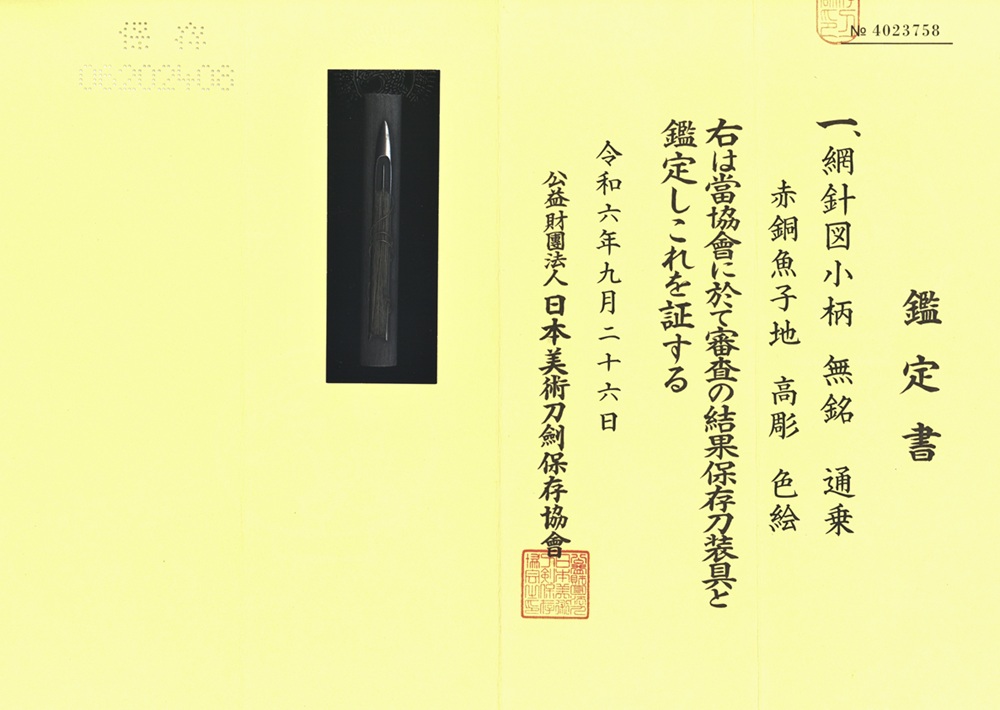 № 4023758
鑑定書
一、網針図小柄 無銘 通乗
赤銅魚子地 高彫 色絵
右は當協會に於て審査の結果保存刀装具と
鑑定しこれを証する
令和六年九月二十六日
公益財團法人 日本美術刀劍保存協會
保存
06202408